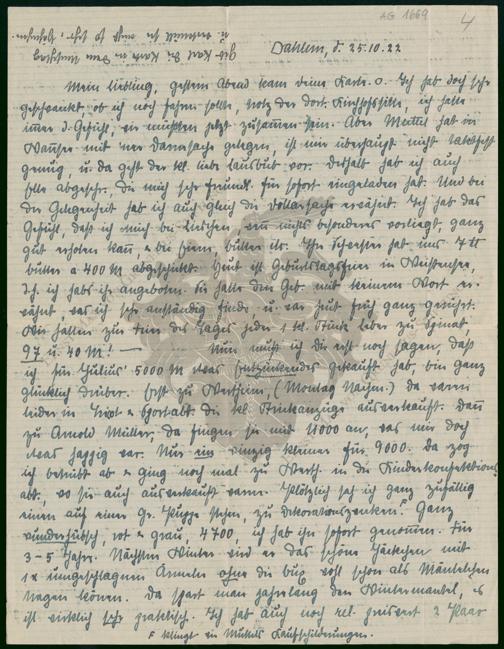 AG 1669
4
Dahlem, d. 25.10.22
Mein Liebling, gestern Abend kam deine Karte. Ich hab doch sehr
geschwankt, ob ich noch fahren sollte, trotz der dort. ich hatte
immer d. Gefühl, wir müssten jetzt zusammen sein. Aber Mutti hat in
Wannsee mit ner Darmsache gelegen, ist nun überhaupt nicht taktfest
genug, u. da geht der kl. liebe Lausbub vor. Deshalb hab ich auch
abgeschr. die mich sehr freundl. für sofort eingeladen hat. Und bei
der Gelegenheit hab ich auch gleich die Dollarsache erwähnt. Ich hab das
Gefühl, dass ich mich bei wenn nichts besonderes vorliegt, ganz
gut erholen kann, Butter etc. Ihre Schwester hat uns 7 tt
Butter a 400 M abgeschickt. Heut ist Geburtstagsfeier in Weissensee,
d.h. ich habs ihr angeboten. Sie hatte den Geb. mit keinem Wort er-
wähnt, was ich sehr anständig finde u. war heut früh ganz gerührt.
Wir hatten zur Feier des Tages jeder 1 kl. Stück Leber zu Spinat,
97 u. 40 M! — Nun muss ich dir erst noch sagen, dass
ich für Julius' 5000 M was Entzückendes gekauft hab, bin ganz
glücklich drüber. Erst zu Wertheim, (Montag Nachm.) da waren
leider in Trikot & Sportabt. die kl. Strickanzüge ausverkauft. Dann
zu Arnold Müller, da fingen sie mit 11000 an, was mir doch
etwas happig war. Nur ein einzig kleiner für 9000. Da zog
ich betrübt ab & ging noch mal zu Werth. in die Kinderkonfektions
abt. wo sie auch ausverkauft waren. Plötzlich seh ich ganz zufällig
einen auf einer Gr. Puppe stehen, zu Dekorationszwecken. Ganz
wunderhübsch, rot & grau, 4700, ich hab ihn sofort genommen. Für
3-5 Jahr. Nächsten Winter wird er das schöne Jäckchen mit
1x umgeschlagnen Ärmeln ohne die Bux voll schon als Mäntelchen
tragen können. Da spart man jahrelang den Wintermantel, es
ist wirklich sehr praktisch. Ich hab auch noch sehr preiswert 2 Paar
klingt wie Muttels Kaufschilderungen.